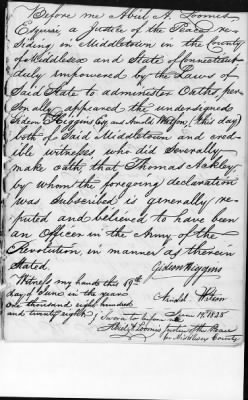 Before me Abiel A. Loomis
Esquire, a Justice of the Peace re-
siding in Middletown in the County
of Middlesex and State of Connecticut
duly empowered by the Laws of
Said State to administer Oaths, per-
sonally appeared the undersigned
Gideon Higgins Esq and Arnold (this day)
both of Said Middletown and cred-
ible witnesses who did severally
make oath, that Thomas
by whom the foregoing declaration
was Subscribed is generally re-
puted and believed to have been
an Officer in the Army of the
Revolution, in manner as therein
Stated.
Gideon Higgins
Witness my hands this 19th
day of June in the year
one thousand eight hundred
and twenty eight
Sworn to before me June 19 1828
Abiel A Loomis Justice of the Peace
for Middlesex County